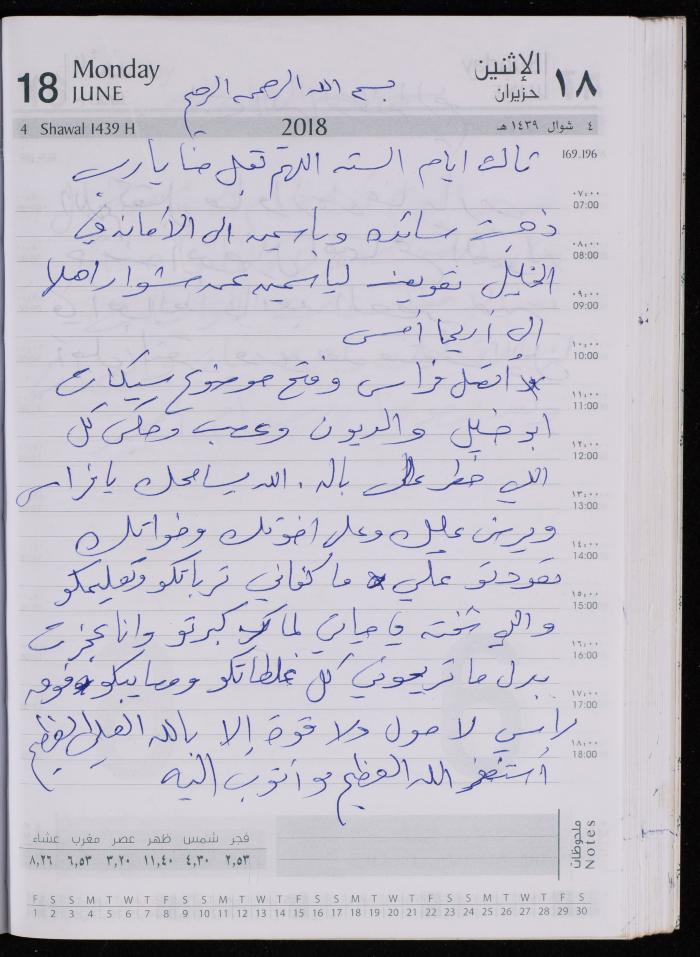 18 Monday JUNE الإثنين حزيران ١٨
بسم الله الرحمن الرحيم
4 Shawal 1439 H 2018 ٤ شوال ١٤٣٩ هـ
169.196
ثالث ايام السته اللهم تقبل منا يارب
٠٧:٠٠ 07:00
ذهبت سائده وياسمين الى الأمانه في
٠٨:٠٠ 08:00
الخليل تفويض لياسمين عمر مشوار اهلا
٠٩:٠٠ 09:00
الى أريحا أمس
١٠:٠٠ 10:00
أتصل فراس وفتح موضوع سيكات
١١:٠٠ 11:00
ابو خليل والديون وعصب وحكى كل
١٢:٠٠ 12:00
اللي خطر على باله . الله يسامحك يا فراس
١٣:٠٠ 13:00
ويرضى عليك وعلى اخوتك وخواتك
١٤:٠٠ 14:00
تعودتو علي ما كفاني ترباتكو وتعليمكو
١٥:٠٠ 15:00
واللي شفته في حياتي لما كبرتو وانا عجزت
١٦:٠٠ 16:00
بدل ما تريحوني كل غلطاتكو ومصايبكو فوق
١٧:٠٠ 17:00
راسي لا حول ولا قوة إلا بالله العلي العظيم
١٨:٠٠ 18:00
أستغفر الله العظيم وأتوب إليه
ملحوظات Notes
فجر شمس ظهر عصر مغرب عشاء
٢,٥٣ ٤,٣٠ ١١,٤٠ ٣,٢٠ ٦,٥٣ ٨,٢٦
F S S M T W T F S S M T W T F S S M T W T F S S M T W T F S
1 2 3 4 5 6 7 8 9 10 11 12 13 14 15 16 17 18 19 20 21 22 23 24 25 26 27 28 29 30